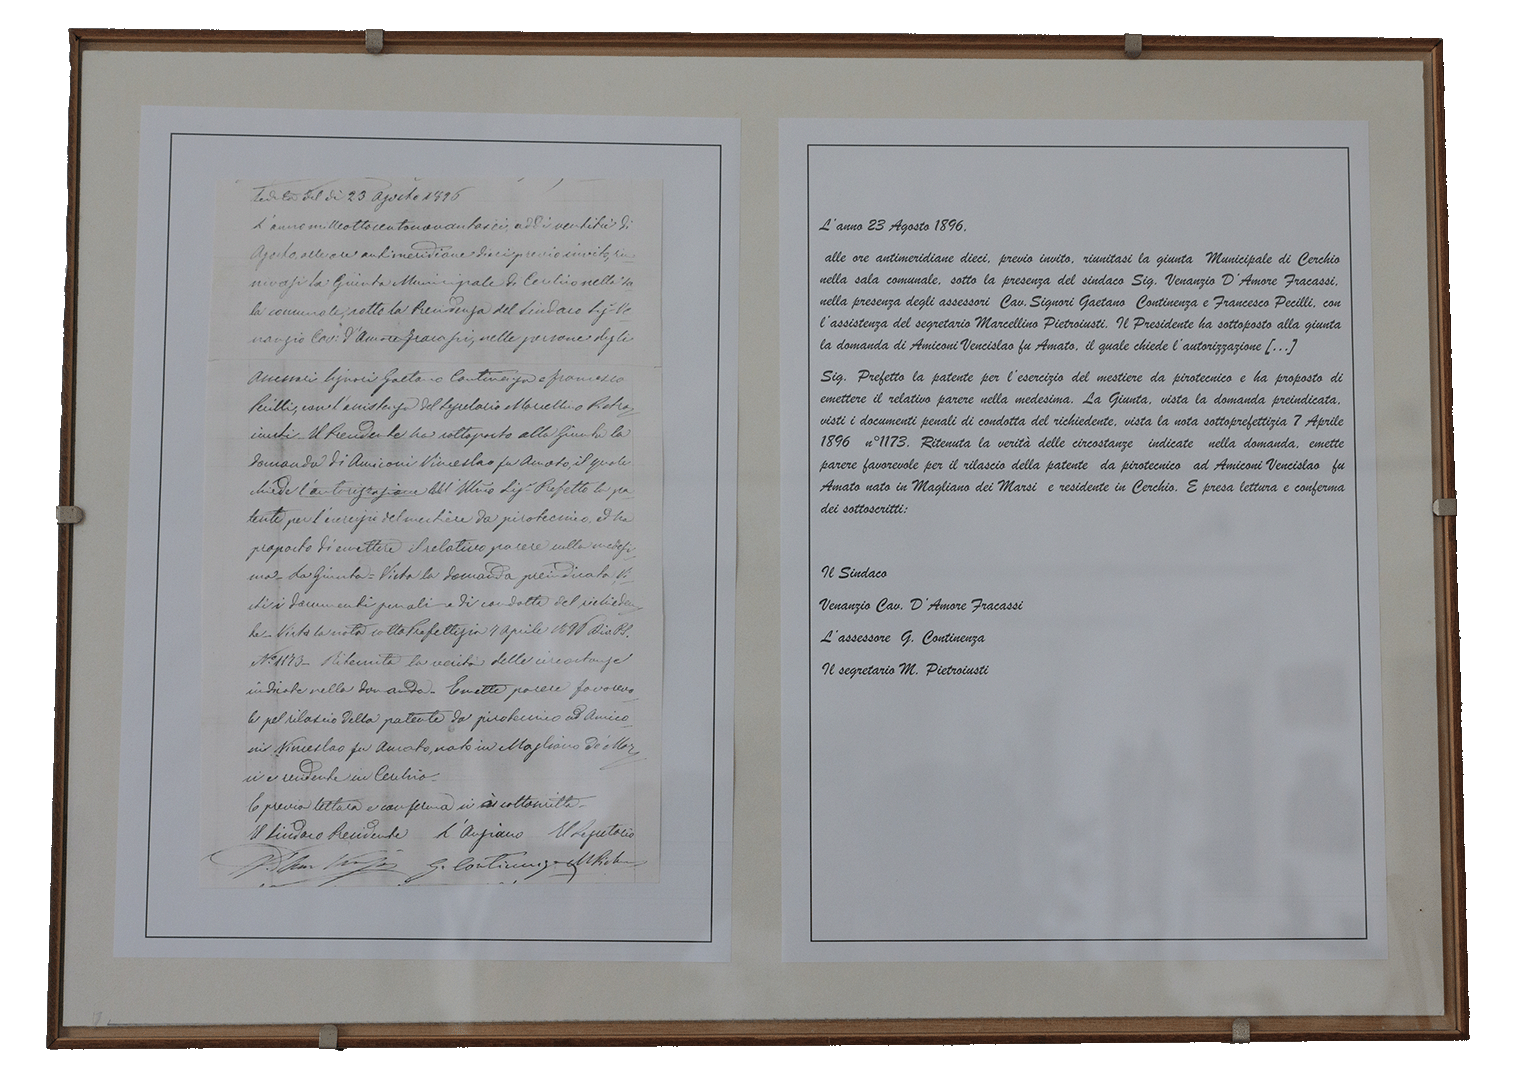 Seduta del dì 23 Agosto 1896
L'anno milleottocentonovantasei, addì ventitrè di
Agosto, alle ore antimeridiane dieci, previo invito, riu
la Giunta Municipale di Cerchio nella sa
la comunale, sotto la Presidenza del Sindaco Sig. Ve
nanzio Cav. d'Amore Fracassi, nelle persone degli
Assessori Signori Gaetano Continenza e Francesco
Pecilli, con l'assistenza del Segretario Marcellino Pietro
iusti. Il Presidente ha sottoposto alla Giunta la
domanda di Amiconi Vinceslao fu Amato, il quale
chiede l'autorizzazione dell'Ill.mo Sig. Prefetto la pa
tente per l'esercizio del mestiere da pirotecnico, ed ha
proposto di emettere il relativo parere sulla medesi
ma. La Giunta = Vista la domanda preindicata, Vi
sti i documenti penali e di condotta del richieden
te. Vista la nota sottoprefettizia 7 Aprile 1896
N.º 1173. Ritenuta la verità delle circostanze
indicate nella domanda. Emette parere favorevo
le pel rilascio della patente da pirotecnico ad Amico
ni Vinceslao fu Amato, nato in Magliano de' Mar
si e residente in Cerchio.
E previa lettura e conferma si è sottoscritto.
Il Sindaco Presidente L'Anziano Il Segretario
G. Continenza
L'anno 23 Agosto 1896,
alle ore antimeridiane dieci, previo invito, riunitasi la giunta Municipale di Cerchio
nella sala comunale, sotto la presenza del sindaco Sig. Venanzio D'Amore Fracassi,
nella presenza degli assessori Cav.Signori Gaetano Continenza e Francesco Pecilli, con
l'assistenza del segretario Marcellino Pietroiusti. Il Presidente ha sottoposto alla giunta
la domanda di Amiconi Vencislao fu Amato, il quale chiede l'autorizzazione [...]
Sig. Prefetto la patente per l'esercizio del mestiere da pirotecnico e ha proposto di
emettere il relativo parere nella medesima. La Giunta, vista la domanda preindicata,
visti i documenti penali di condotta del richiedente, vista la nota sottoprefettizia 7 Aprile
1896 n°1173. Ritenuta la verità delle circostanze indicate nella domanda, emette
parere favorevole per il rilascio della patente da pirotecnico ad Amiconi Vencislao fu
Amato nato in Magliano dei Marsi e residente in Cerchio. E presa lettura e conferma
dei sottoscritti:
Il Sindaco
Venanzio Cav. D'Amore Fracassi
L'assessore G. Continenza
Il segretario M. Pietroiusti